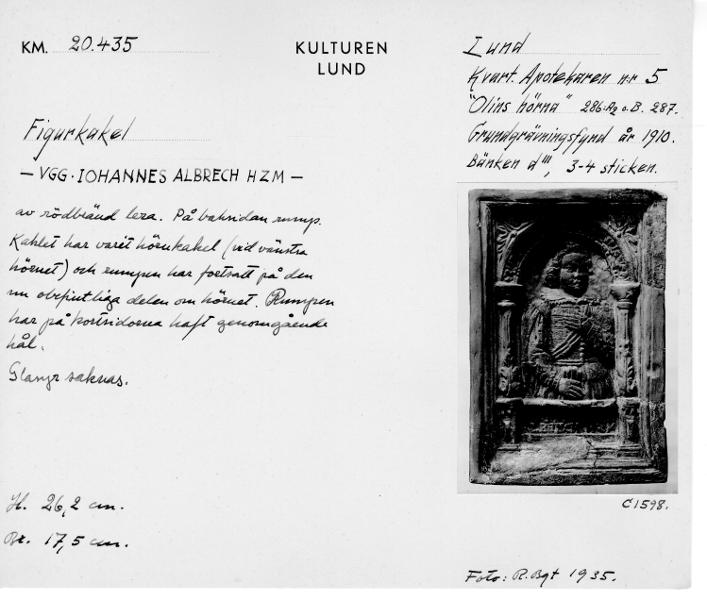 KM. 20.435
KULTUREN
LUND
Lund
Kvart. Apotekaren nr 5
"Olins hörna" 286 Ag o. B. 287.
Grundgrävningsfynd år 1910.
Bänken d''', 3-4 sticken.
Figurkakel
— VGG · IOHANNES ALBRECH HZM —
av rödbränd lera. På baksidan rump.
Kaklet har varit hörnkakel (vid vänstra
hörnet) och rumpen har fortsatt på den
nu obefintliga delen om hörnet. Rumpen
har på kortsidorna haft genomgående
hål.
Glasyr saknas.
H. 26,2 cm.
Br. 17,5 cm.
C1598.
Foto: R. Bgt 1935.